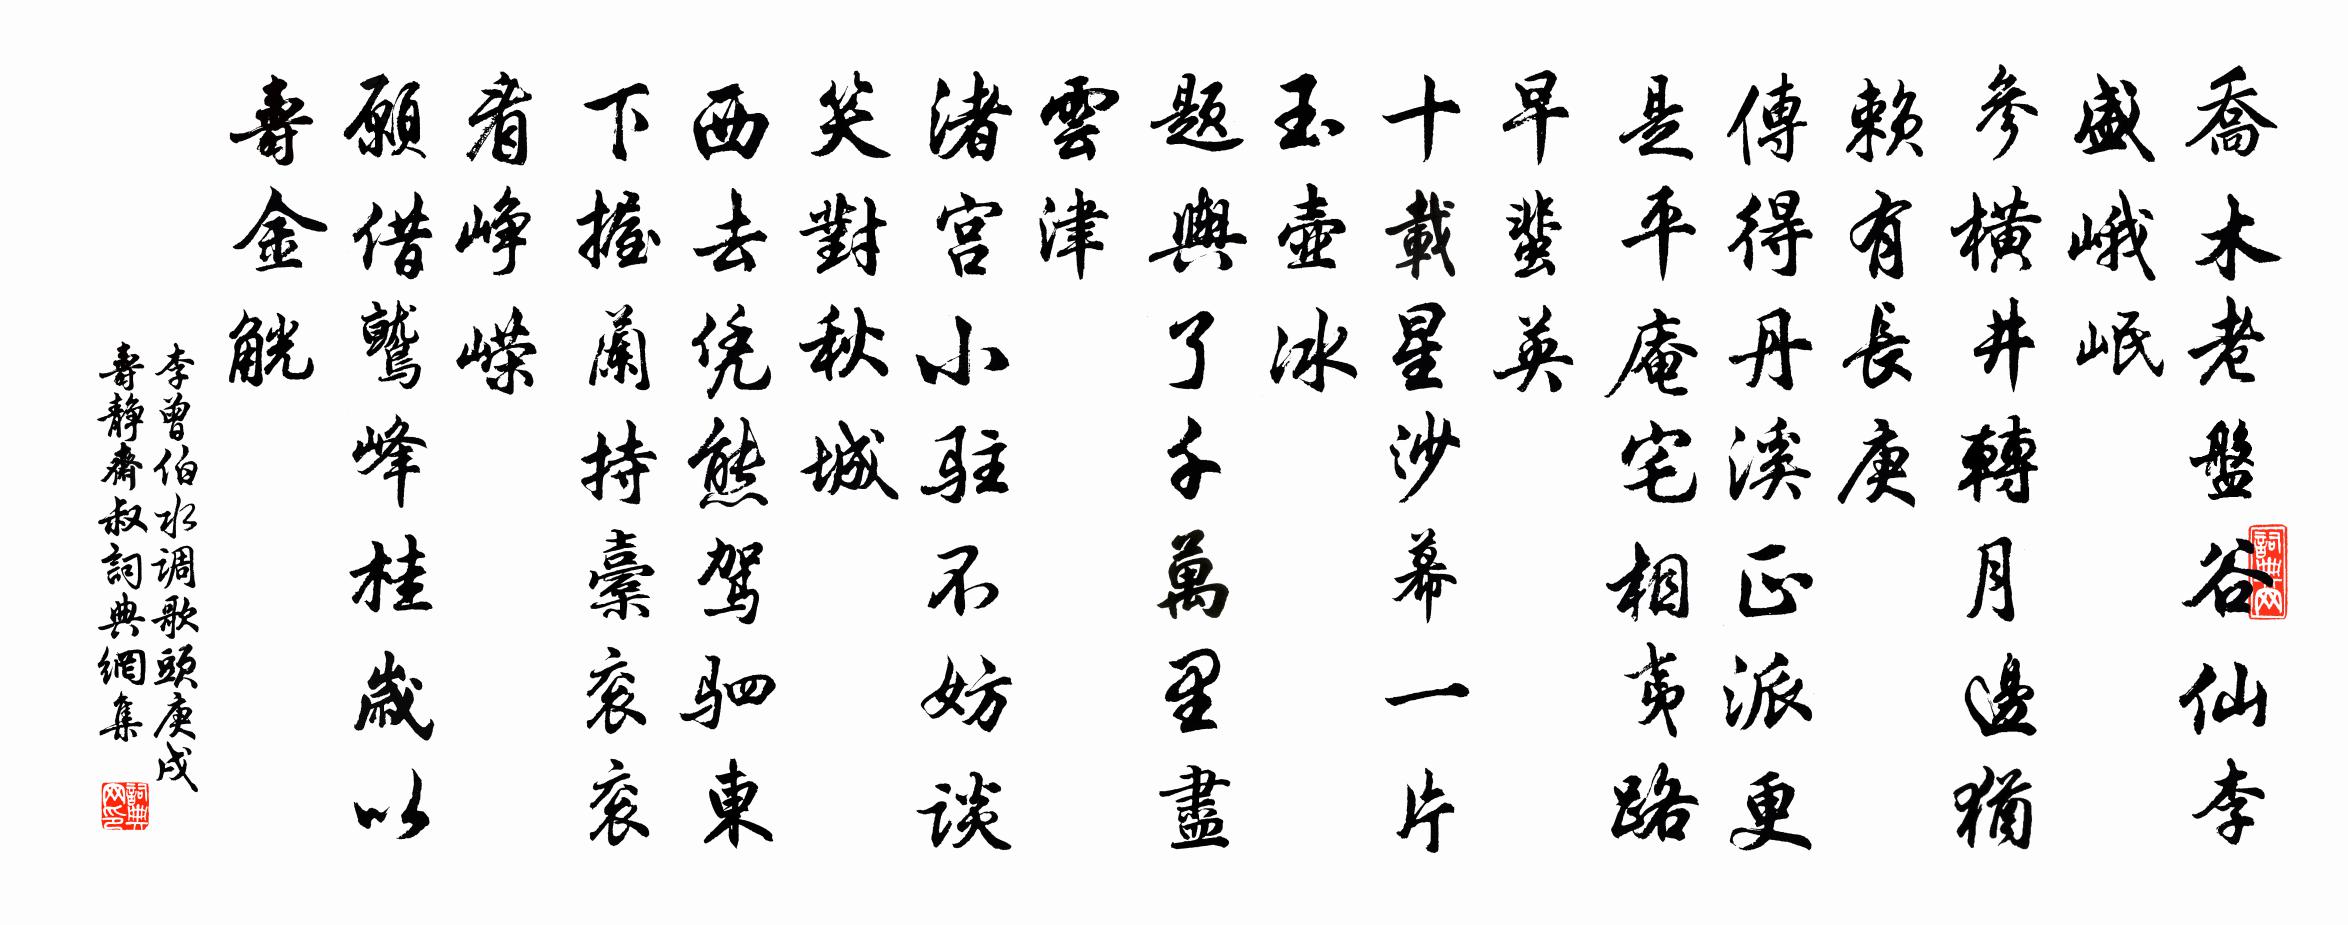 喬木老盤谷仙李
盛峨岷
參橫井轉月邊猶
賴有長庚
傳得丹溪正派更
是平庵宅相夷路
早蜚英
十載星沙幕一片
玉壺冰
題輿了千萬里盡
雲津
渚宮小駐不妨談
笑對秋城
西去凭熊駕駟東
下握蘭持橐衮衮
看崢嶸
願借鷲峰桂歲以
壽金觥
李曾伯水调歌頭庚戌
壽静齋叔詞典網集
詞典网
詞典网印